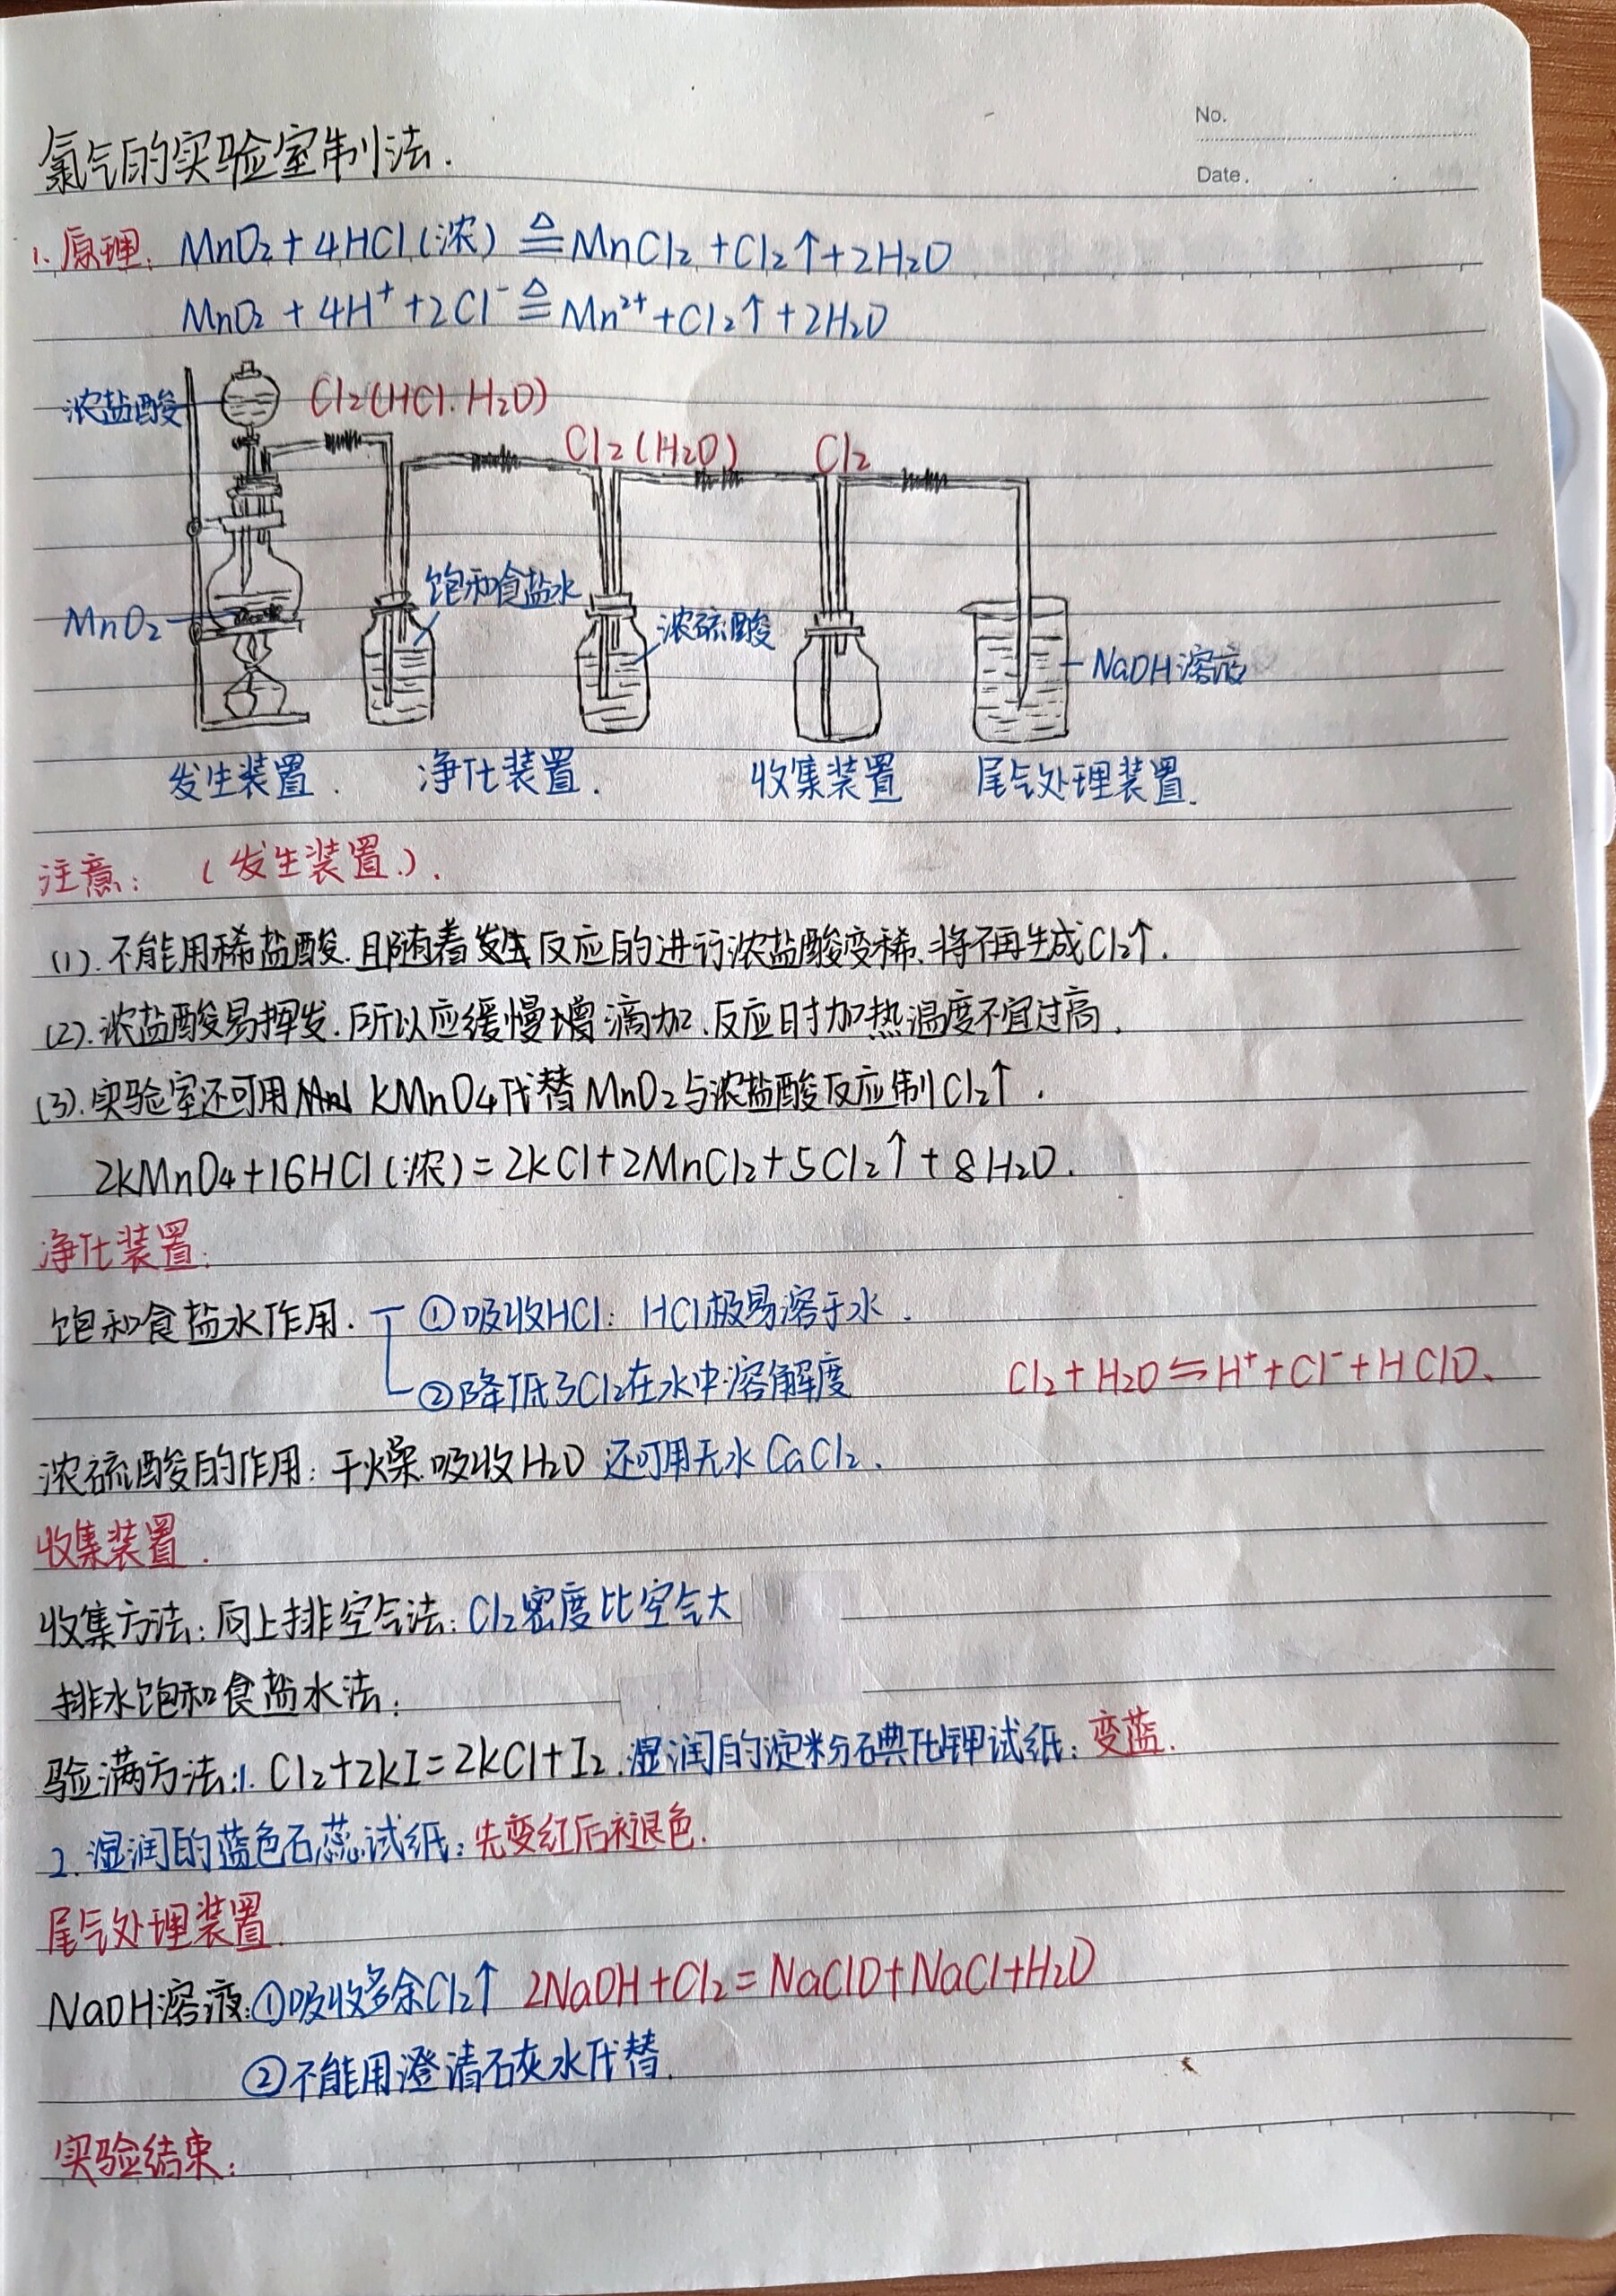 No.
Date.
氯气的实验室制法.
1.原理. MnO₂+4HCl(浓) ≜ MnCl₂+Cl₂↑+2H₂O
MnO₂+4H⁺+2Cl⁻ ≜ Mn²⁺+Cl₂↑+2H₂O
浓盐酸 Cl₂(HCl.H₂O)
Cl₂(H₂O) Cl₂
饱和食盐水
MnO₂ 浓硫酸 NaOH溶液
发生装置. 净化装置. 收集装置 尾气处理装置.
注意: (发生装置.).
(1).不能用稀盐酸.且随着发生反应的进行浓盐酸变稀.将不再生成Cl₂↑.
(2).浓盐酸易挥发.所以应缓慢增滴加.反应时加热温度不宜过高.
(3).实验室还可用 KMnO₄代替MnO₂与浓盐酸反应制Cl₂↑.
2KMnO₄+16HCl(浓)=2KCl+2MnCl₂+5Cl₂↑+8H₂O.
净化装置:
饱和食盐水作用. ①吸收HCl: HCl极易溶于水.
②降低了Cl₂在水中溶解度 Cl₂+H₂O⇌H⁺+Cl⁻+HClO.
浓硫酸的作用: 干燥.吸收H₂O 还可用无水CaCl₂.
收集装置.
收集方法: 向上排空气法: Cl₂密度比空气大
排水饱和食盐水法:
验满方法:1. Cl₂+2KI=2KCl+I₂.湿润的淀粉碘化钾试纸: 变蓝.
2.湿润的蓝色石蕊试纸: 先变红后褪色.
尾气处理装置.
NaOH溶液:①吸收多余Cl₂↑ 2NaOH+Cl₂=NaClO+NaCl+H₂O
②不能用澄清石灰水代替.
实验结束: